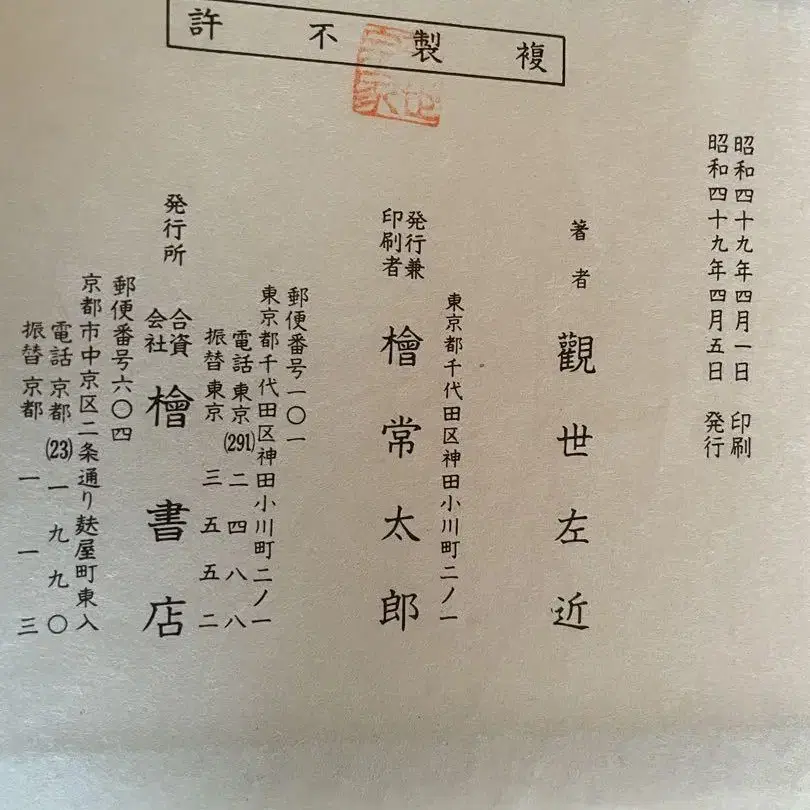 複製不許
昭和四十九年四月一日 印刷
昭和四十九年四月五日 発行
著者 觀世左近
東京都千代田区神田小川町二ノ一
発行兼
印刷者 檜常太郎
郵便番号一〇一
東京都千代田区神田小川町二ノ一
電話東京(291)二四八八
振替東京 三五五二
発行所 合資
会社 檜書店
郵便番号六〇四
京都市中京区二条通り麸屋町東入
電話京都(23)一九九〇
振替京都 一一三